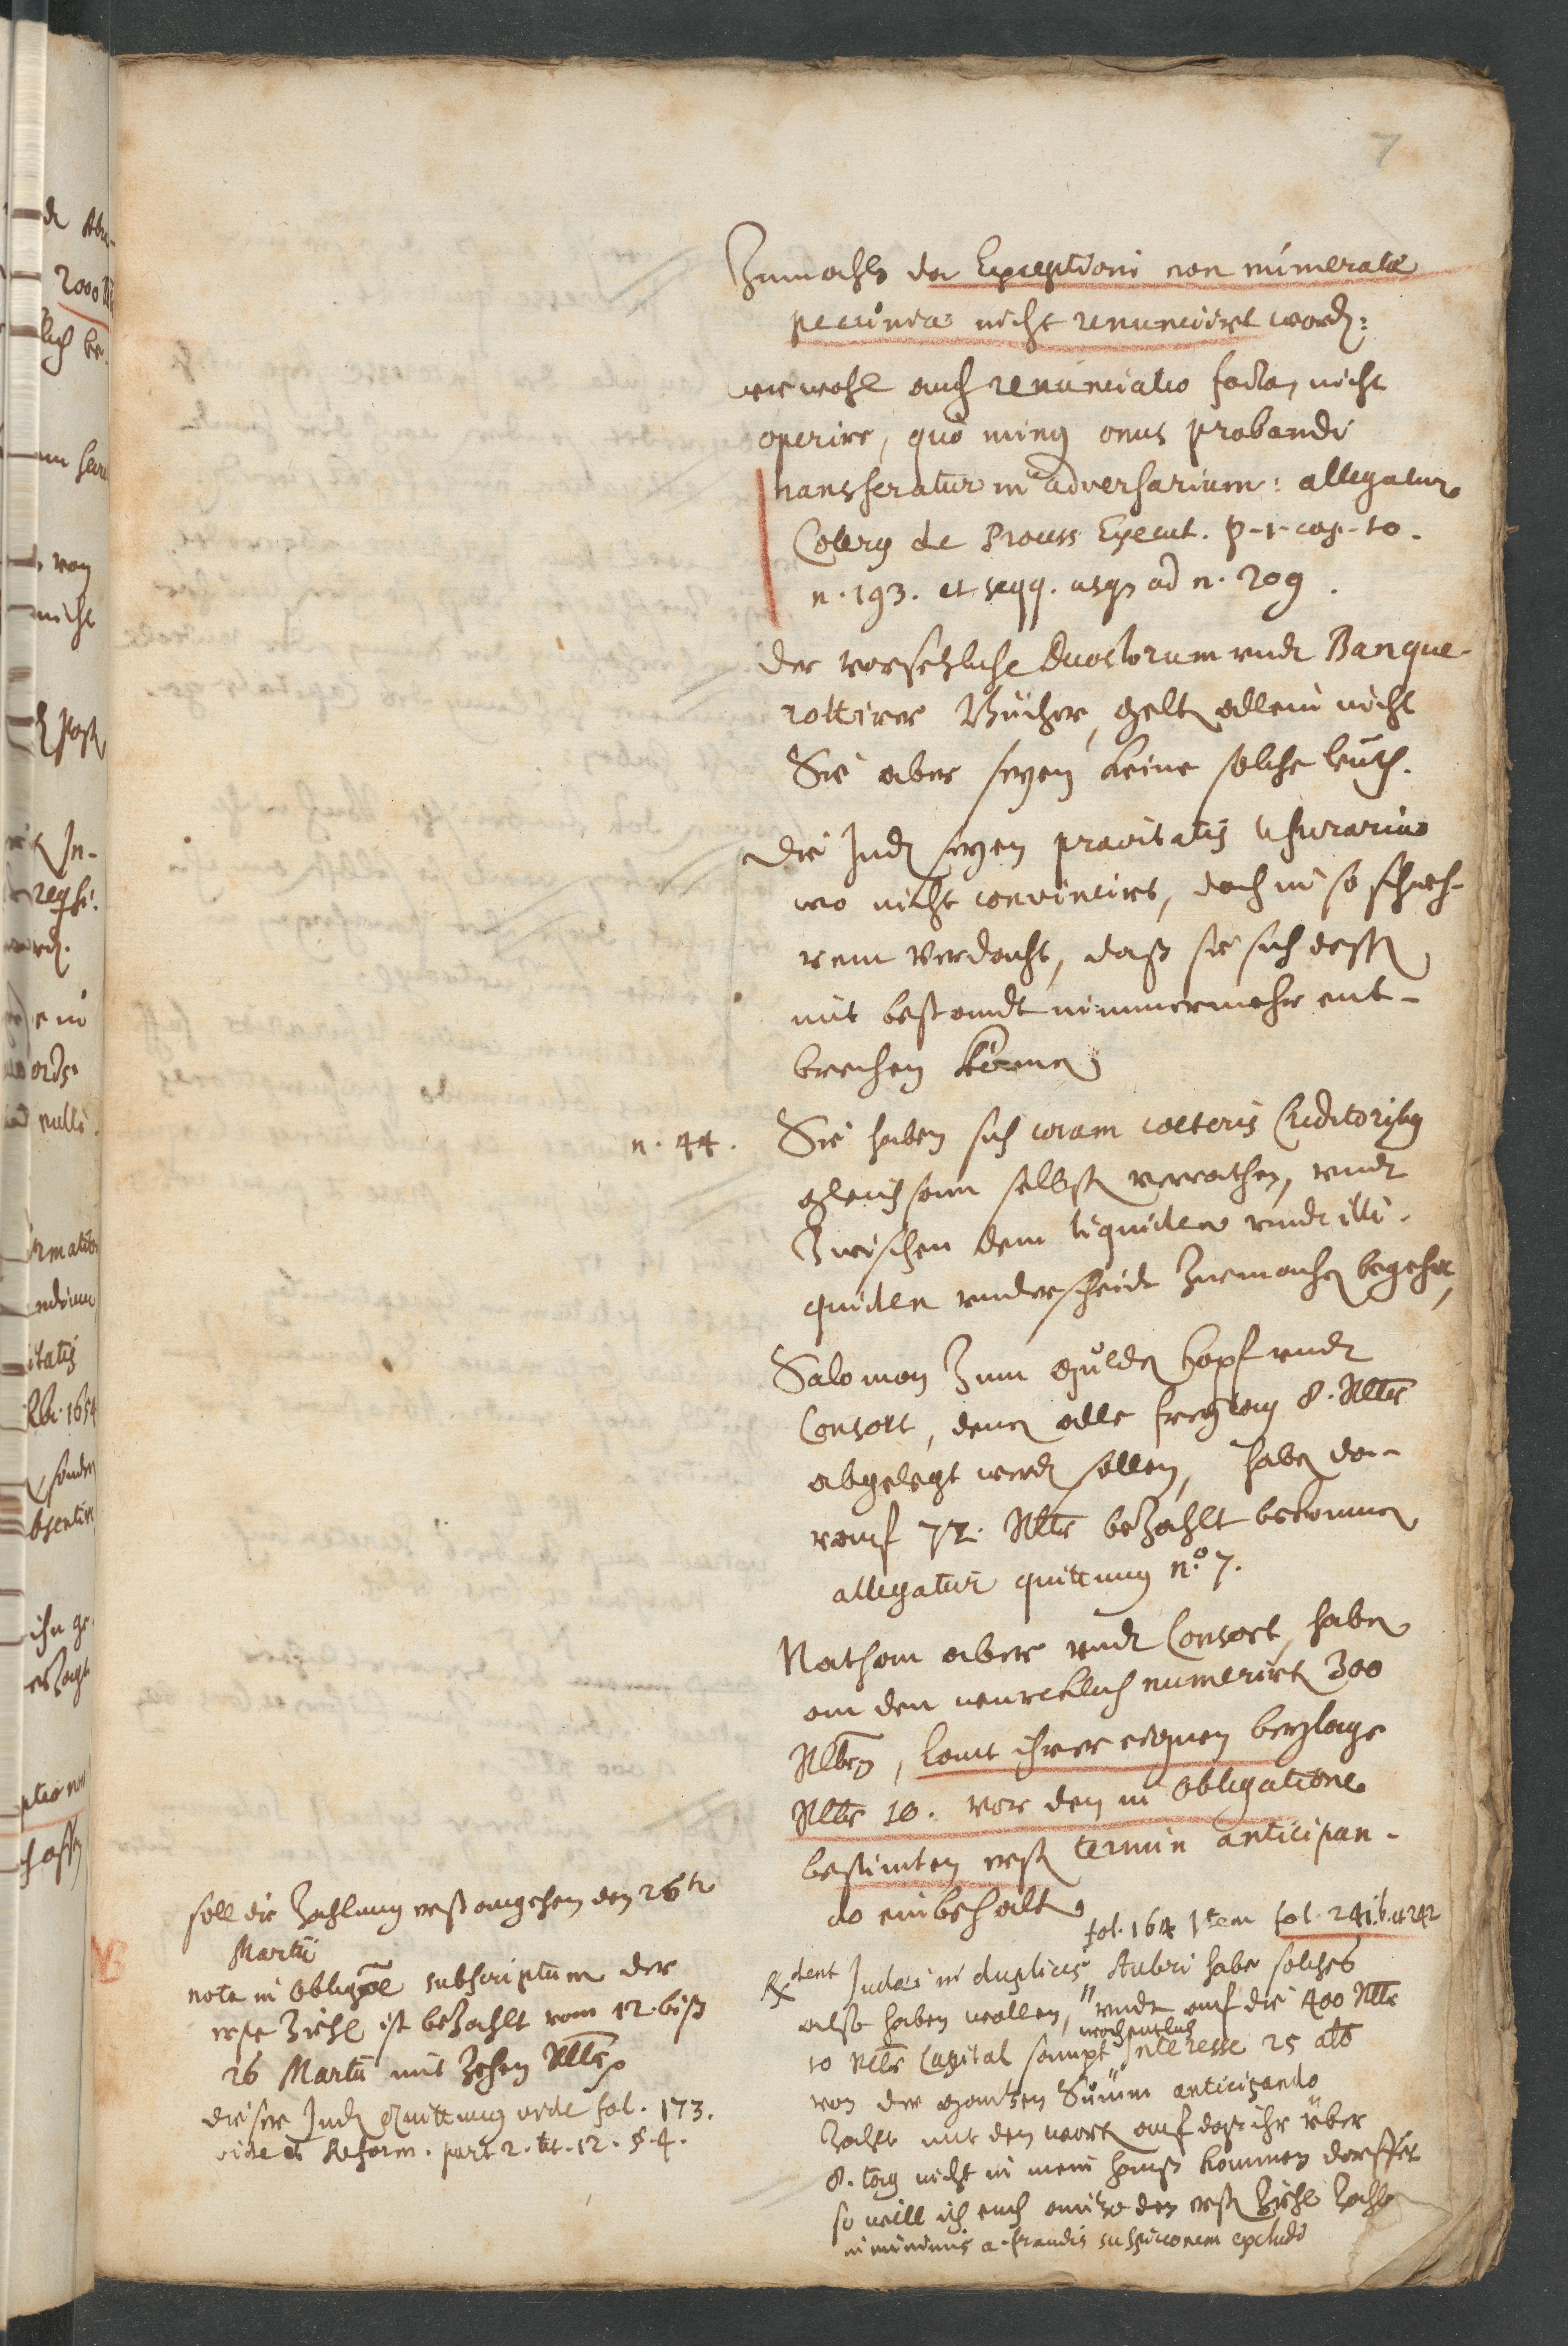 7
Zumahls der Exceptioni non numeratæ
pecuniæ nicht renunciirt word:
wie wohl auch renunciatio facta, nicht
operire, quò minus onus probandi
transferatur in adversarium: allegatur
Colerus de Process Execut. p. 1. cap. 10.
n. 193. et seqq. usque ad n. 209.
Der vorsetzliche Decoctorum undt Banque-
rottirer Bücher, gelten allein nicht
Sie aber seyen keine solche leuth.
Die Juden seyen pravitatis Usurariæ
wo nicht convincirt, doch in so schweh-
rem Verdacht, daß sie sich dessen
mit bestandt nimmermehr ent-
brechen können
n. 44.
Sie haben sich coram cæteris Creditoribus
gleichsam selbsten verrathen, undt
Zwischen dem liquiden undt illi-
quiden underscheidt Zuemachen begehrt,
Salomon Zum gulden Kopf undt
Consort, denen alle freytag 8. Rthlr
abgelegt werden sollen, haben da-
rauf 72. Rthlr bezahlt bekommen
allegatur quittung No. 7.
Nathan aber undt Consort, haben
an den würcklich numerirten 300
Rthlrn, laut ihrer eignen beylage
Rthlr 10. vor dem in Obligatione
bestimten ersten termin anticipan-
do einbehalten
fol. 164 Item fol. 241. b. et 242
Rxdent Judæi in duplicis, Auberi habe solches
also haben wollen, undt auf die 400 Rthlr
10 Rthlr Capital sampt wochentlich Interesse 25 alb
von der gantzen Summ anticipando
Zahlt mit den worten auf daß ihr über
8. tag nicht in mein hauß kommen dorffet
so will ich euch anitzo den ersten Ziehl Zahlen
in minimis a. fraudis suspicionem excludi
soll die Zahlung erst angehen den 26ten
Martii
NB
nota in Obligaõe subscriptum der
erste Ziehl ist bezahlt vom 12. biß
26 Martii mit Zehen Rthlr
dieser Juden Quittung vide fol. 173.
vide et Reform. part 2. tit. 12. §. 4.